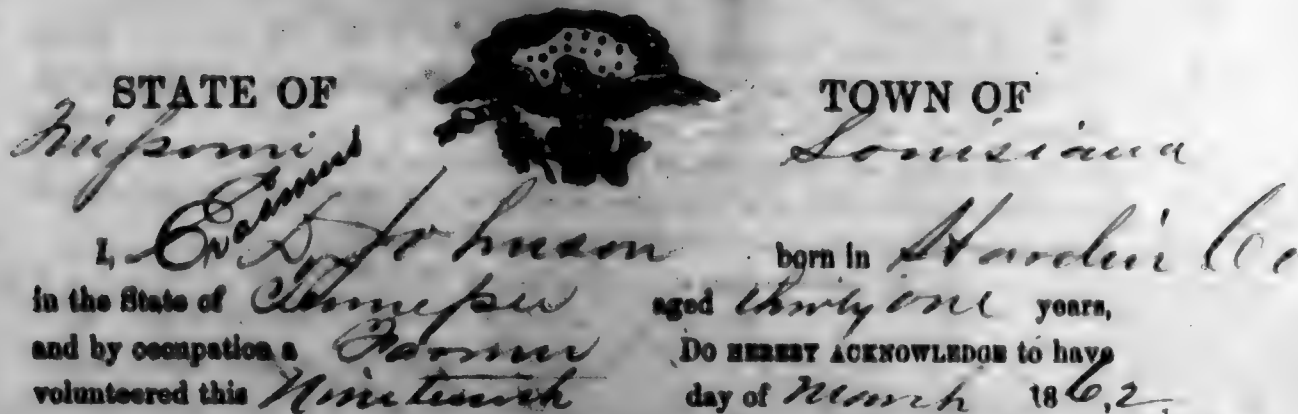 STATE OF TOWN OF
Missouri Louisiana
Erasmus
I, E D Johnson born in Hardin Co
in the State of Tennessee aged thirty one years,
and by occupation a Farmer Do HEREBY ACKNOWLEDGE to have
volunteered this Nineteenth day of March 1862,